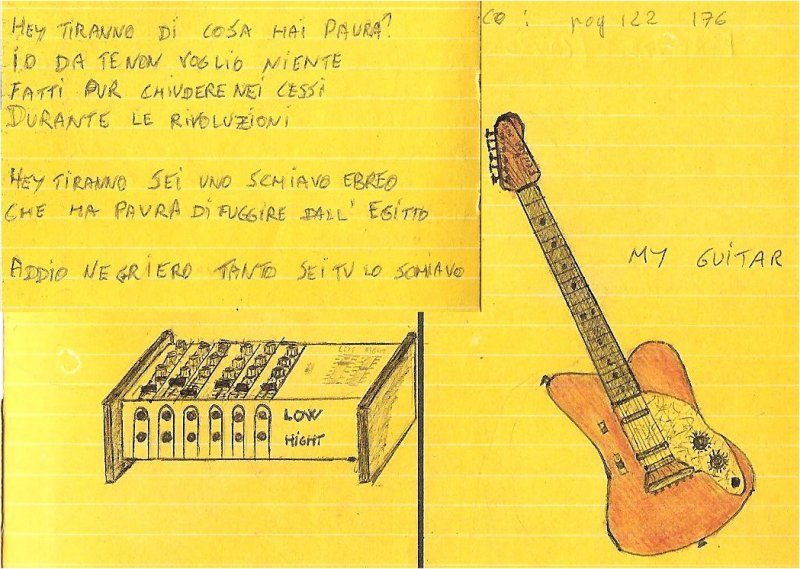 HEY TIRANNO DI COSA HAI PAURA?
IO DA TE NON VOGLIO NIENTE
FATTI PUR CHIUDERE NEI CESSI
DURANTE LE RIVOLUZIONI
HEY TIRANNO SEI UNO SCHIAVO EBREO
CHE HA PAURA DI FUGGIRE DALL' EGITTO
ADDIO NEGRIERO TANTO SEI TU LO SCHIAVO
CO : pag 122 176
MY GUITAR
LOW HIGHT
LOW
HIGHT